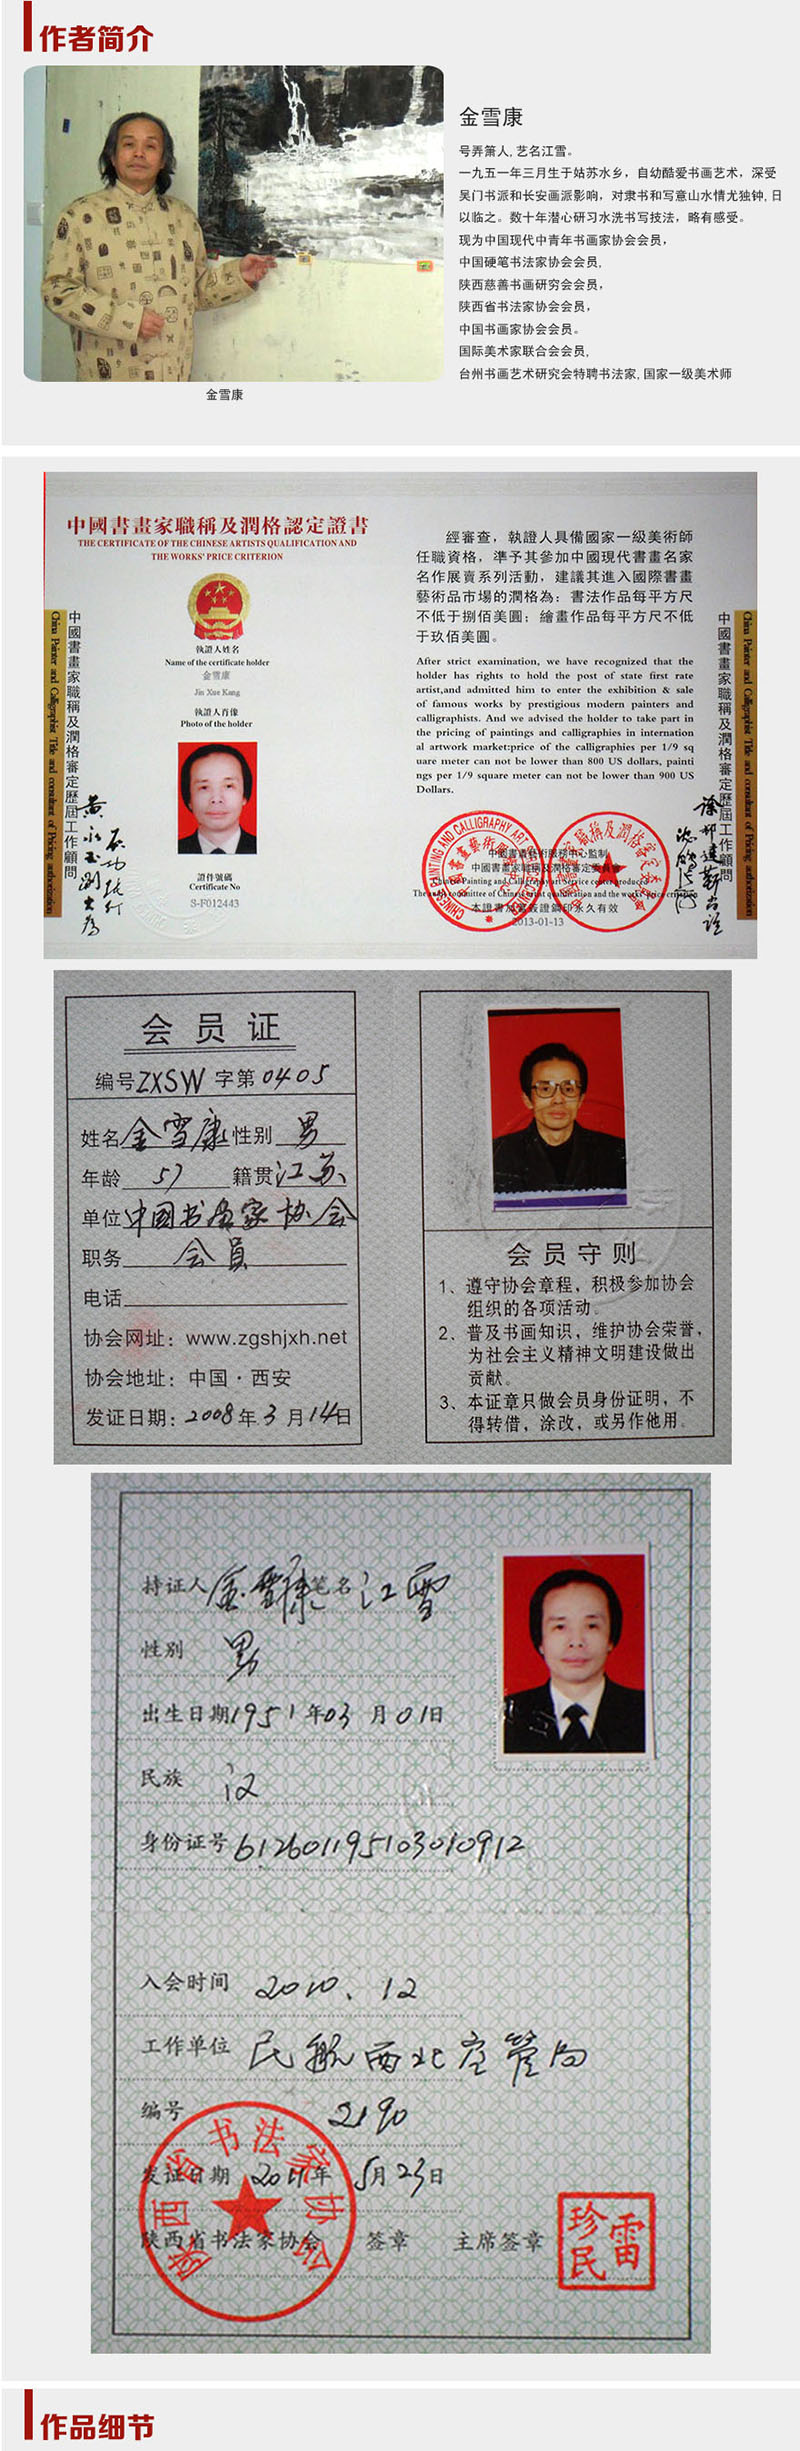 作者简介
金雪康
号弄箫人,艺名江雪。
一九五一年三月生于姑苏水乡，自幼酷爱书画艺术，深受
吴门书派和长安画派影响，对隶书和写意山水情尤独钟,日
以临之。数十年潜心研习水洗书写技法，略有感受。
现为中国现代中青年书画家协会会员，
中国硬笔书法家协会会员,
陕西慈善书画研究会会员，
陕西省书法家协会会员，
中国书画家协会会员。
国际美术家联合会会员,
台州书画艺术研究会特聘书法家,国家一级美术师
金雪康
中國書畫家職稱及潤格認定證書
THE CERTIFICATE OF THE CHINESE ARTISTS QUALIFICATION AND
THE WORKS' PRICE CRITERION
執證人姓名
Name of the certificate holder
金雪康
Jin Xue Kang
執證人肖像
Photo of the holder
證件號碼
Certificate No
S-F012443
中國書畫家職稱及潤格審定歷屆工作顧問
China Painter and Calligraphist Title and consultant of Pricing authorization
經審查，執證人具備國家一級美術師
任職資格，準予其參加中國現代書畫名家
名作展賣系列活動，建議其進入國際書畫
藝術品市場的潤格為：書法作品每平方尺
不低于捌佰美圓；繪畫作品每平方尺不低
于玖佰美圓。
After strict examination, we have recognized that the
holder has rights to hold the post of state first rate
artist,and admitted him to enter the exhibition & sale
of famous works by prestigious modern painters and
calligraphists. And we advised the holder to take part in
the pricing of paintings and calligraphies in internation
al artwork market:price of the calligraphies per 1/9 sq
uare meter can not be lower than 800 US dollars, painti
ngs per 1/9 square meter can not be lower than 900 US
Dollars.
中國書畫藝術服務中心監制
中國書畫家職稱及潤格審定委員會
本證書加蓋簽證鋼印永久有效
2013-01-13
中國書畫家職稱及潤格審定歷屆工作顧問
China Painter and Calligraphist Title and consultant of Pricing authorization
会员证
编号ZXSW字第0405
姓名 金雪康 性别 男
年龄 57 籍贯 江苏
单位 中国书画家协会
职务 会员
电话
协会网址：www.zgshjxh.net
协会地址：中国·西安
发证日期：2008年3月14日
会员守则
1、遵守协会章程，积极参加协会
组织的各项活动。
2、普及书画知识，维护协会荣誉，
为社会主义精神文明建设做出
贡献。
3、本证章只做会员身份证明，不
得转借，涂改，或另作他用。
持证人 金雪康 笔名 江雪
性别 男
出生日期 1951年03月01日
民族 汉
身份证号 612601195103010912
入会时间 2010.12
工作单位 民航西北空管局
编号 2190
发证日期 2011年5月23日
陕西省书法家协会 签章 主席签章
陕西省书法家协会
雷珍民
作品细节